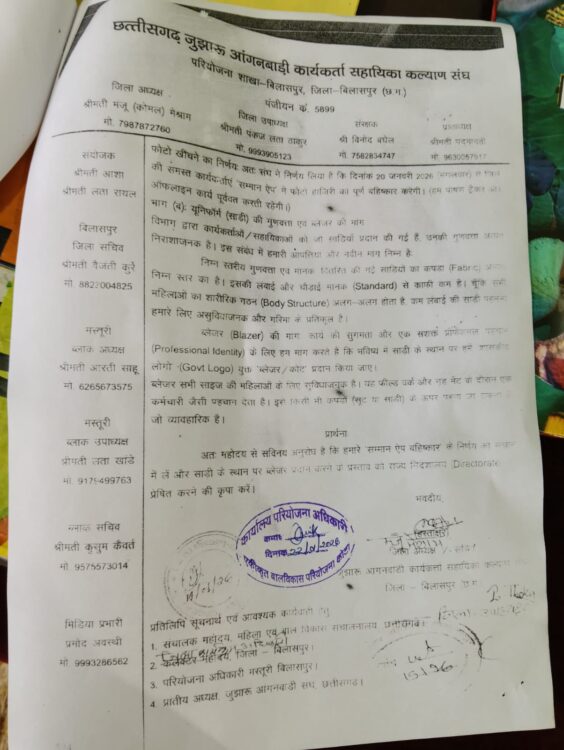 छत्तीसगढ़ जुझारू आंगनबाड़ी कार्यकर्ता सहायिका कल्याण संघ
परियोजना शाखा–बिलासपुर, जिला–बिलासपुर (छ.ग.)
पंजीयन क्रं. 5899
जिला अध्यक्ष
श्रीमती मंजू (कोमल) मेश्राम
मो. 7987872760
जिला उपाध्यक्ष
श्रीमती पंकज लता ठाकुर
मो. 9993905123
संरक्षक
श्री विनोद बघेल
मो. 7582834747
श्रीमती
मो. 9630057517
संयोजक
श्रीमती आशा
श्रीमती लता रायल
बिलासपुर
जिला सचिव
श्रीमती वैजंती कुर्रे
मो. 8827004825
मस्तूरी
ब्लाक अध्यक्ष
श्रीमती आरती साहू
मो. 6265673575
मस्तूरी
ब्लाक उपाध्यक्ष
श्रीमती लता खांडे
मो. 9179499763
ब्लाक सचिव
श्रीमती कुसुम कैवर्त
मो. 9575573014
मिडिया प्रभारी
प्रमोद अवस्थी
मो. 9993286562
फोटो खींचने का निर्णय अतः संघ ने निर्णय लिया है कि दिनांक 20 जनवरी 2026 (मंगलवार) से जिले
की समस्त कार्यकर्ताएं 'सम्मान ऐप' में फोटो हाजिरी का पूर्ण बहिष्कार करेंगी। (हम पोषण ट्रैकर का
ऑफलाइन कार्य पूर्ववत करती रहेंगी।)
भाग (ब): यूनिफॉर्म (साड़ी) की गुणवत्ता एवं ब्लेजर की मांग
विभाग द्वारा कार्यकर्ताओं/सहायिकाओं को जो साड़ियां प्रदान की गई है, उनकी गुणवत्ता अत्यंत
निराशाजनक है। इस संबंध में हमारी आपत्तियां और नवीन मांग निम्न है:
निम्न स्तरीय गुणवत्ता एवं मानक वितरित की गई साड़ियों का कपड़ा (Fabric) अत्यंत
निम्न स्तर का है। इसकी लंबाई और चौड़ाई मानक (Standard) से काफी कम है। चूंकि सभी
महिलाओं का शारीरिक गठन (Body Structure) अलग–अलग होता है, कम लंबाई की साड़ी पहनना
हमारे लिए असुविधाजनक और गरिमा के प्रतिकूल है।
ब्लेजर (Blazer) की मांग: कार्य की सुगमता और एक सशक्त प्रोफेशनल पहचान
(Professional Identity) के लिए हम मांग करते है कि भविष्य में साड़ी के स्थान पर हमें 'शासकीय
लोगो' (Govt Logo) युक्त 'ब्लेजर/कोट' प्रदान किया जाए।
ब्लेजर सभी साइज की महिलाओं के लिए सुविधाजनक है। यह फील्ड वर्क और गृह भेंट के दौरान एक
कर्मचारी जैसी पहचान देता है। इसे किसी भी कपड़े (सूट या साड़ी) के ऊपर पहना जा सकता है
जो व्यावहारिक है।
प्रार्थना
अतः महोदय से सविनय अनुरोध है कि हमारे 'सम्मान ऐप बहिष्कार' के निर्णय को संज्ञान
में लें और साड़ी के स्थान पर ब्लेजर प्रदान करने के प्रस्ताव को राज्य निदेशालय (Directorate)
प्रेषित करने की कृपा करें।
भवदीय,
कार्यालय परियोजना अधिकारी
क्रमांक
दिनांक 22/01/2026
एकीकृत बालविकास परियोजना कोटा
जिला अध्यक्ष / सचिव
जुझारू आंगनबाड़ी कार्यकर्ता सहायिका कल्याण संघ
जिला – बिलासपुर छ.ग.
प्रतिलिपि सूचनार्थ एवं आवश्यक कार्यवाही हेतु
1. संचालक महोदय, महिला एवं बाल विकास संचालनालय, छत्तीसगढ़।
2. कलेक्टर महोदय, जिला – बिलासपुर।
3. परियोजना अधिकारी मस्तूरी बिलासपुर।
4. प्रांतीय अध्यक्ष, जुझारू आंगनबाड़ी संघ, छत्तीसगढ़।